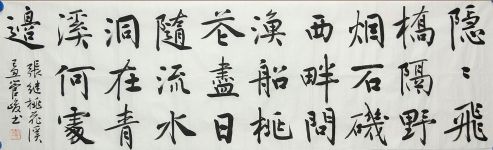 隱〻飛
橋隔野
烟石磯
西畔問
漁船桃
花盡日
隨流水
洞在青
溪何處
邊
張继桃花溪
管峻书